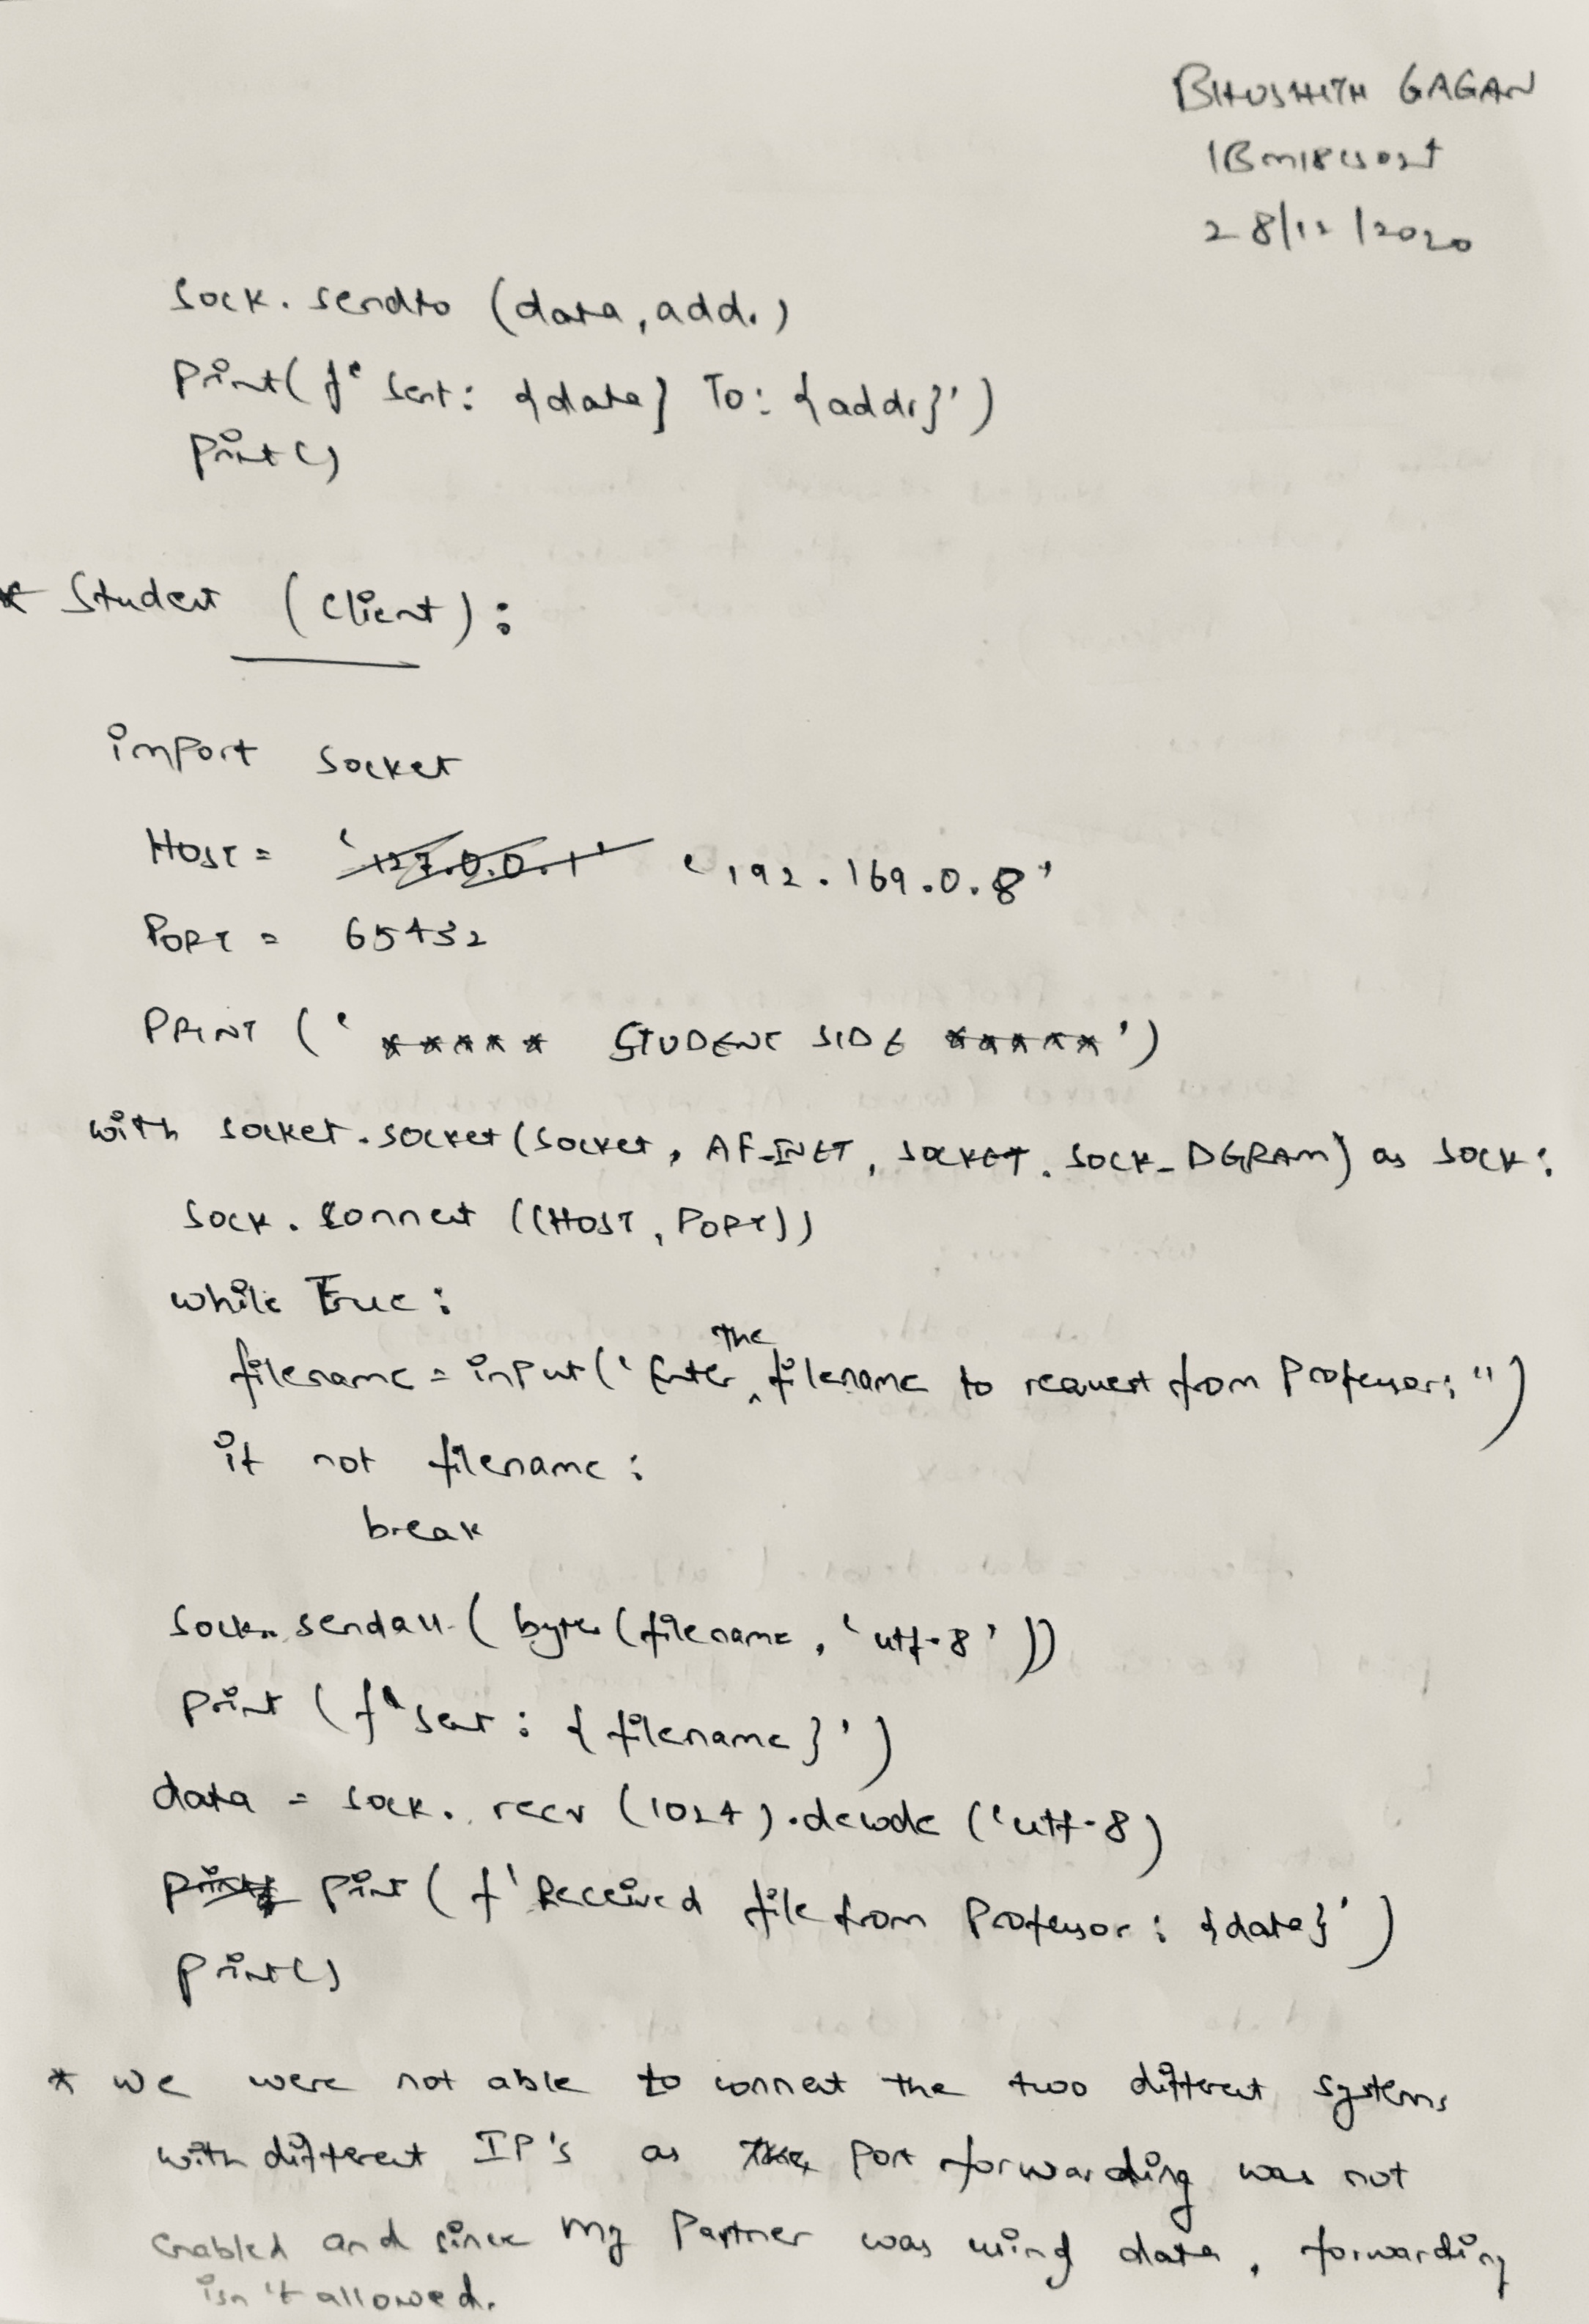 BHUSHITH GAGAN
1BM18CS024
28/12/2020
sock.sendto (data, add.)
print(f' sent: {data} To: {addr}')
print()
* Student (Client):
import socket
HOST = '127.0.0.1' '192.169.0.8'
PORT = 65432
PRINT (' ***** STUDENT SIDE *****')
with socket.socket(socket, AF_INET, SOCKET.SOCK_DGRAM) as SOCK:
sock.connect ((HOST, PORT))
while True:
filename = input(' Enter the filename to request from Professor: ")
if not filename:
break
sock.sendall (bytes(filename, 'utf-8'))
print (f' sent: {filename}')
data = sock.recv (1024).decode ('utf-8)
print( f' Received file from Professor: {data}')
print()
* we were not able to connect the two different systems
with different IP's as port forwarding was not
enabled and since my Partner was using data, forwarding
isn't allowed.